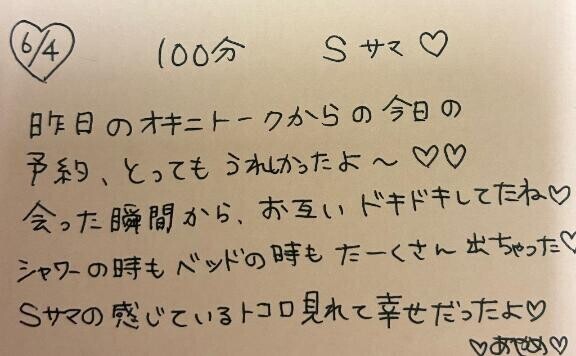 6/4 100分 Sサマ♡
昨日のオキニトークからの今日の
予約、とってもうれしかったよ〜♡♡
会った瞬間から、お互いドキドキしてたね♡
シャワーの時もベッドの時もたーくさん出ちゃった♡
Sサマの感じているトコロ見れて幸せだったよ♡